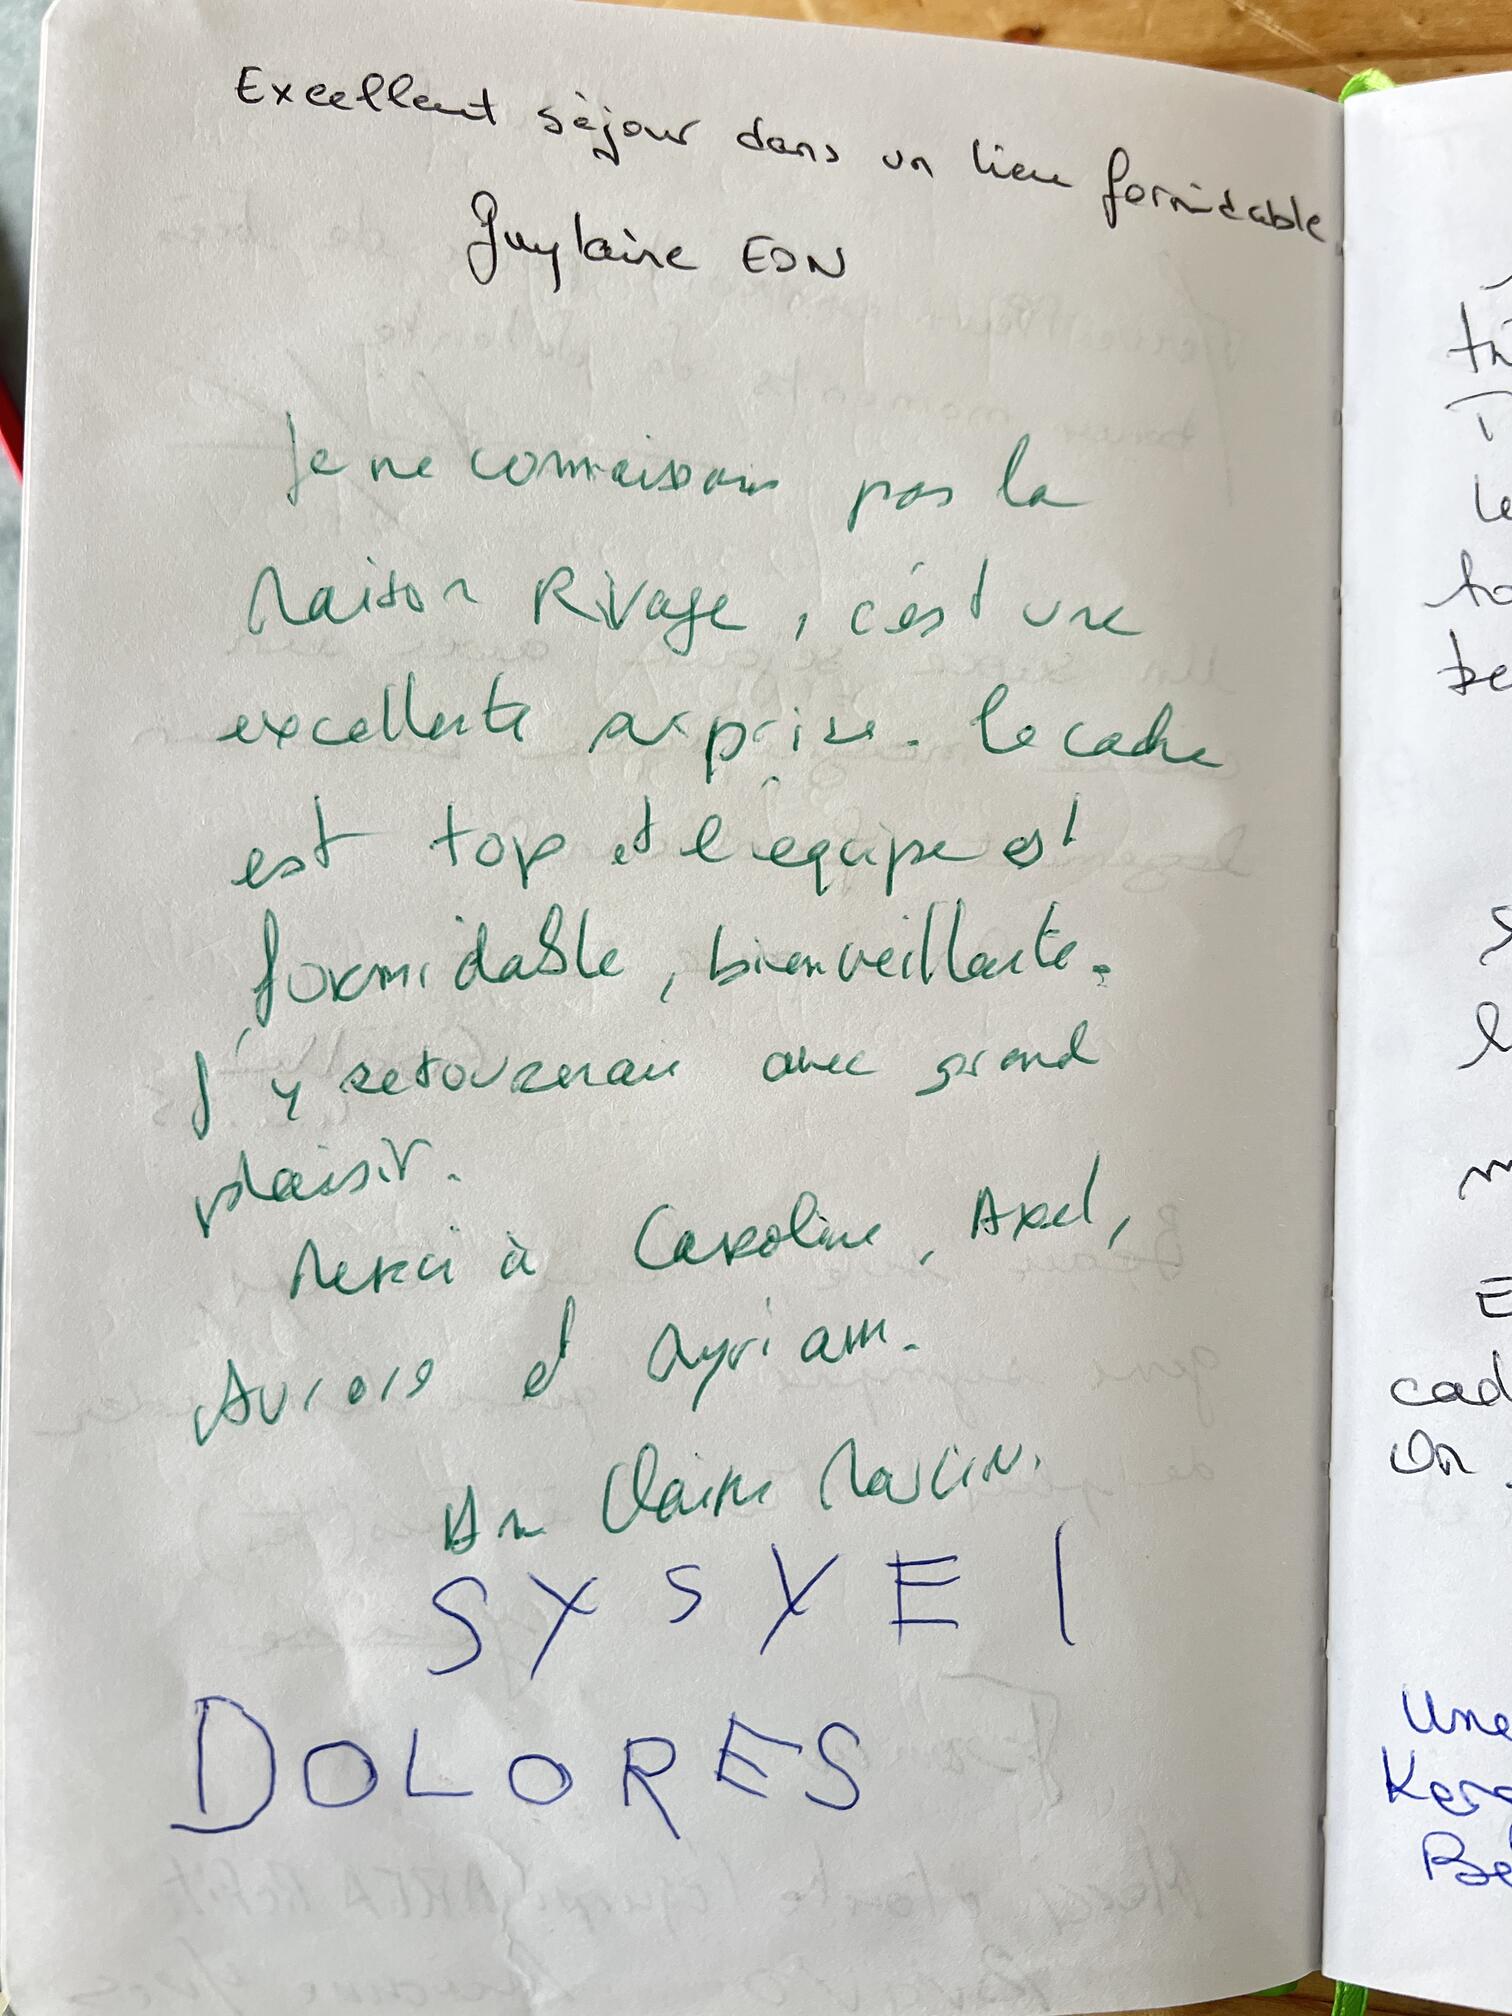 Excellent séjour dans un lieu formidable.
Guylaine EON
Je ne connaissais pas la
Maison Rivage, c'est une
excellente surprise. Le cadre
est top et l'équipe est
formidable, bienveillante.
J'y retournerai avec grand
plaisir.
Merci à Caroline, Axel,
Aurore et Myriam.
An Claire Marcin.
SYSYEI
DOLORES
tr
le
to
be
l
m
E
cad
On
Une
Ker
Be